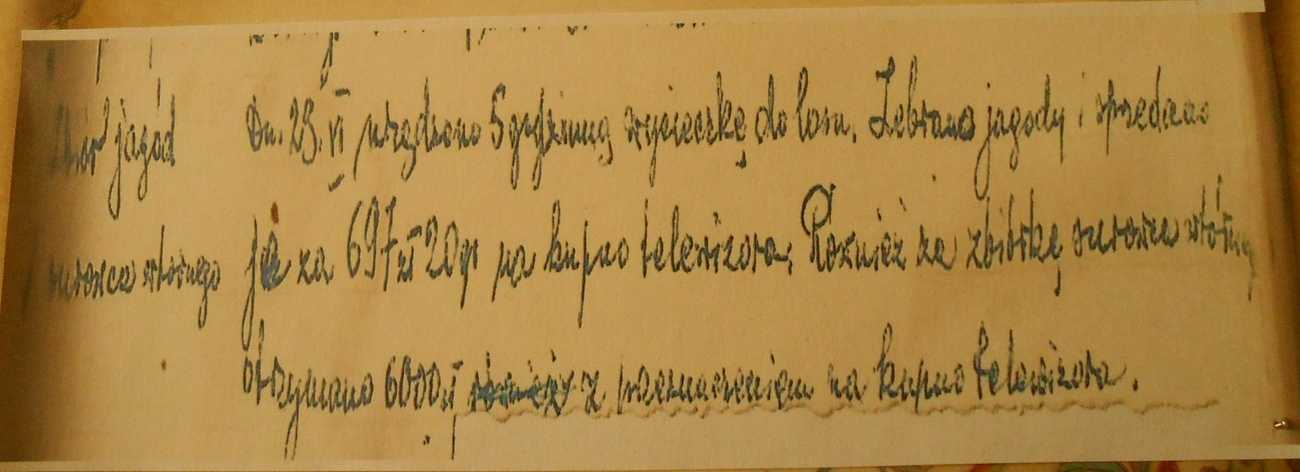 Zbiór jagód Dn. 23.VI urządzono 5 godzinną wycieczkę do lasu. Zebrano jagody i sprzedano
surowca wtórnego je za 697 zł 20 gr na kupno telewizora. Również za zbiórkę surowca wtórnego
otrzymano 6000 zł również z przeznaczeniem na kupno telewizora.